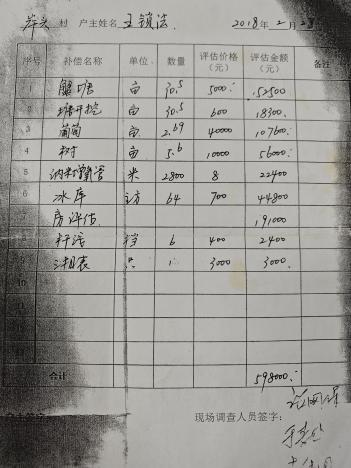 莽头 村 户主姓名 王锁法 2018年2月28
序号 补偿名称 单位 数量 评估价格(元) 评估金额(元) 备注
1 蟹塘 亩 30.5 5000 152500
2 塘开挖 亩 30.5 600 18300
3 葡萄 亩 2.69 40000 107600
4 树 亩 5.6 10000 56000
5 纳米增氧管 米 2800 8 22400
6 冰库 立方 64 700 44800
房评估 191000
8 杆线 档 6 400 2400
9 水电表 1 3000 3000
合计 598000
现场调查人员签字:
户主签字